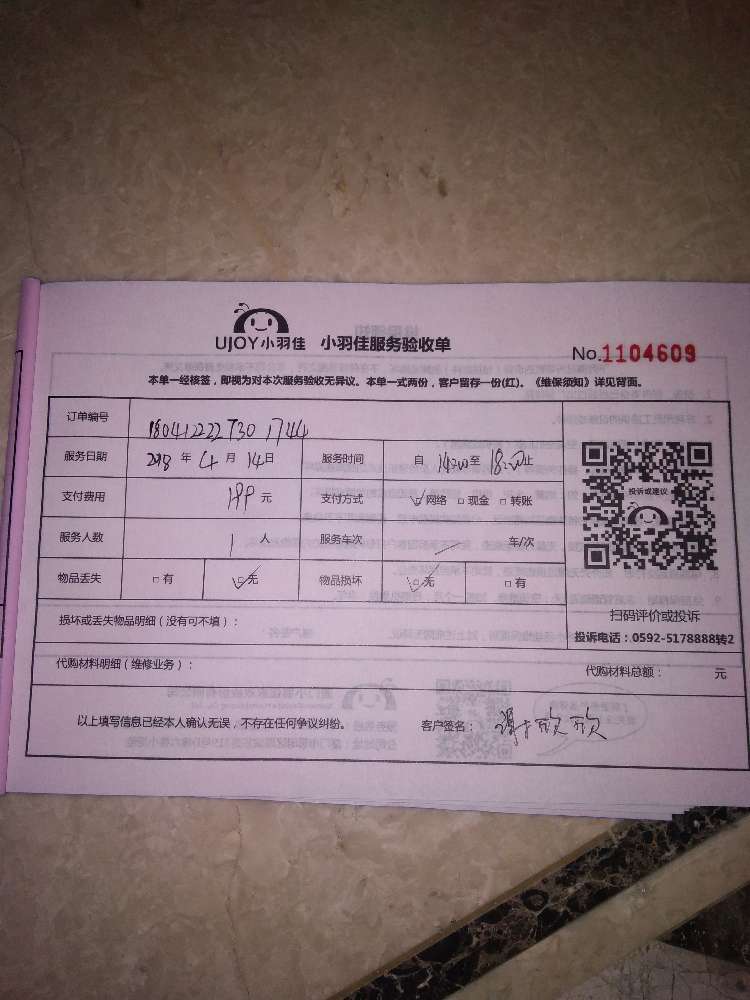 UJOY小羽佳 小羽佳服务验收单
No.1104609
本单一经核签，即视为对本次服务验收无异议。本单一式两份，客户留存一份(红)。《维保须知》详见背面。
订单编号 180412222730 1744
服务日期 2018 年 4 月 14 日 服务时间 自 14:00 至 18:00 止
支付费用 199 元 支付方式 ☑网络 □现金 □转账
服务人数 1 人 服务车次 / 车/次
物品丢失 □有 ☑无 物品损坏 ☑无 □有
投诉或建议
扫码评价或投诉
投诉电话：0592-5178888转2
损坏或丢失物品明细（没有可不填）：
代购材料明细（维修业务）： 代购材料总额： 元
以上填写信息已经本人确认无误，不存在任何争议纠纷。 客户签名： 谢欣欣